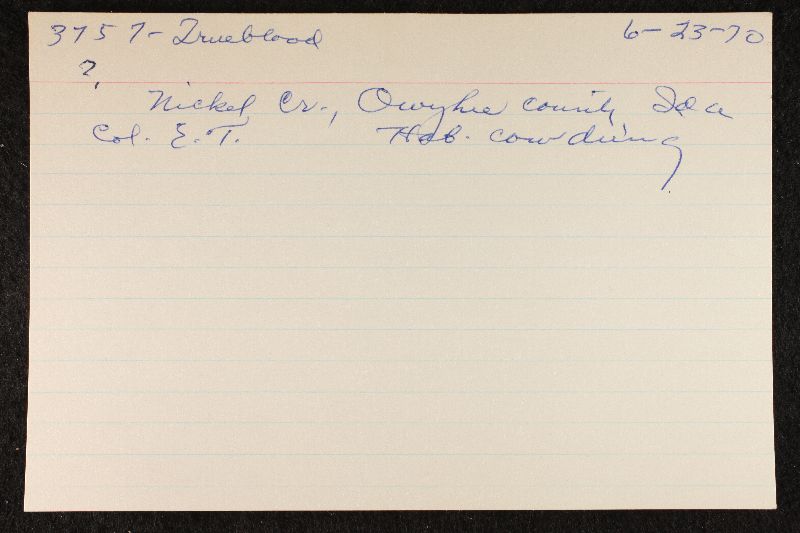 3757- Trueblood 6-23-70
?
Nickel Cr., Owyhee County Ida
Col. E.T. Hab. cow dung